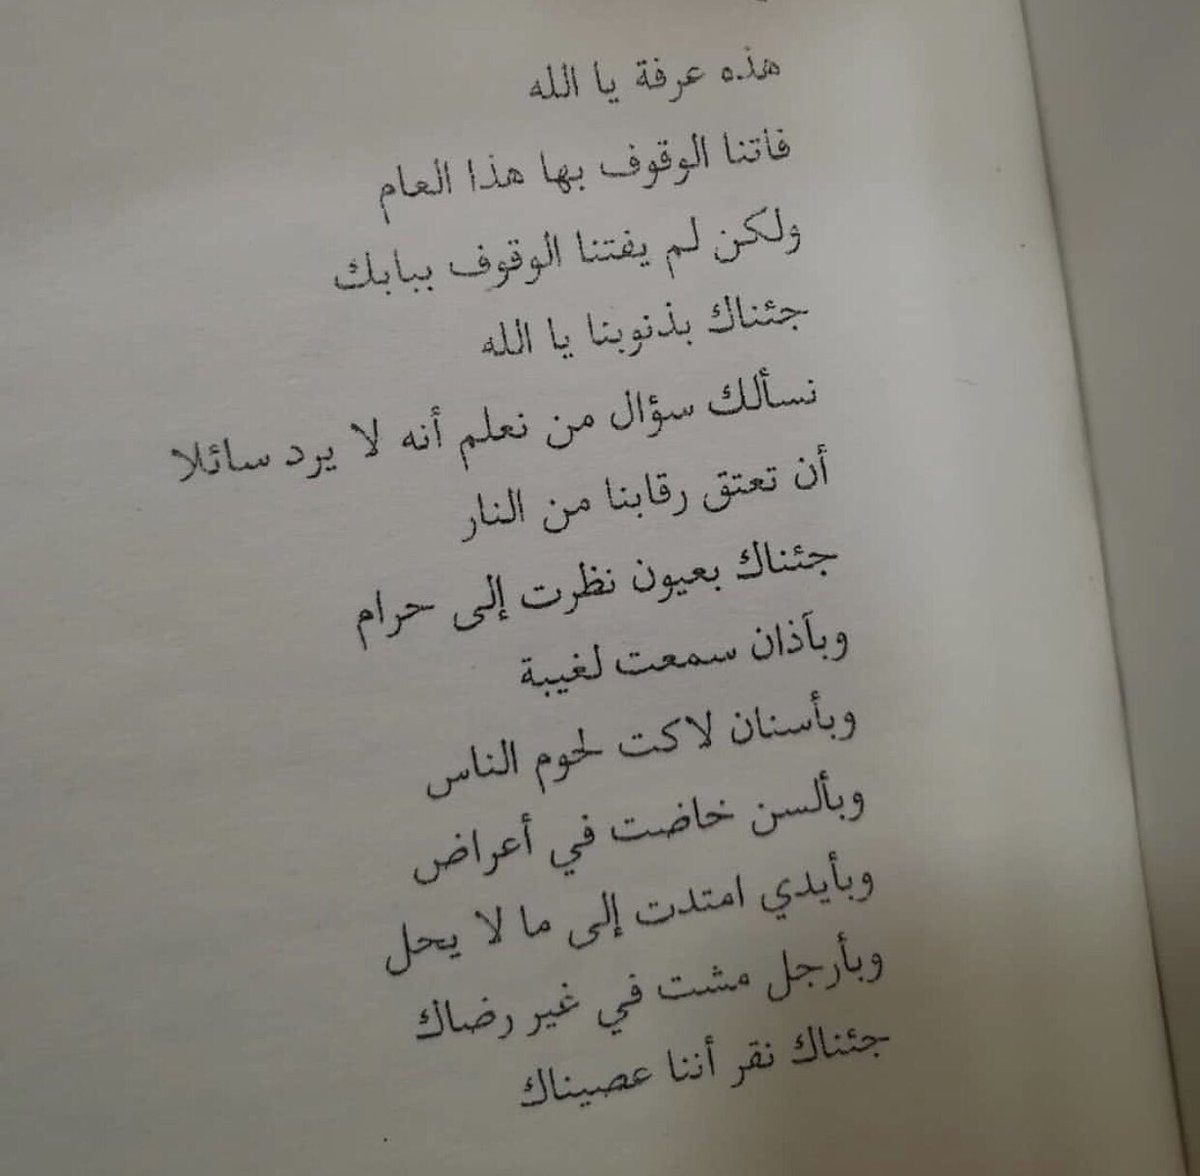 هذه عرفة يا الله
فاتنا الوقوف بها هذا العام
ولكن لم يفتنا الوقوف ببابك
جئناك بذنوبنا يا الله
نسألك سؤال من نعلم أنه لا يرد سائلا
أن تعتق رقابنا من النار
جئناك بعيون نظرت إلى حرام
وبآذان سمعت لغيبة
وبأسنان لاكت لحوم الناس
وبألسن خاضت في أعراض
وبأيدي امتدت إلى ما لا يحل
وبأرجل مشت في غير رضاك
جئناك نقر أننا عصيناك